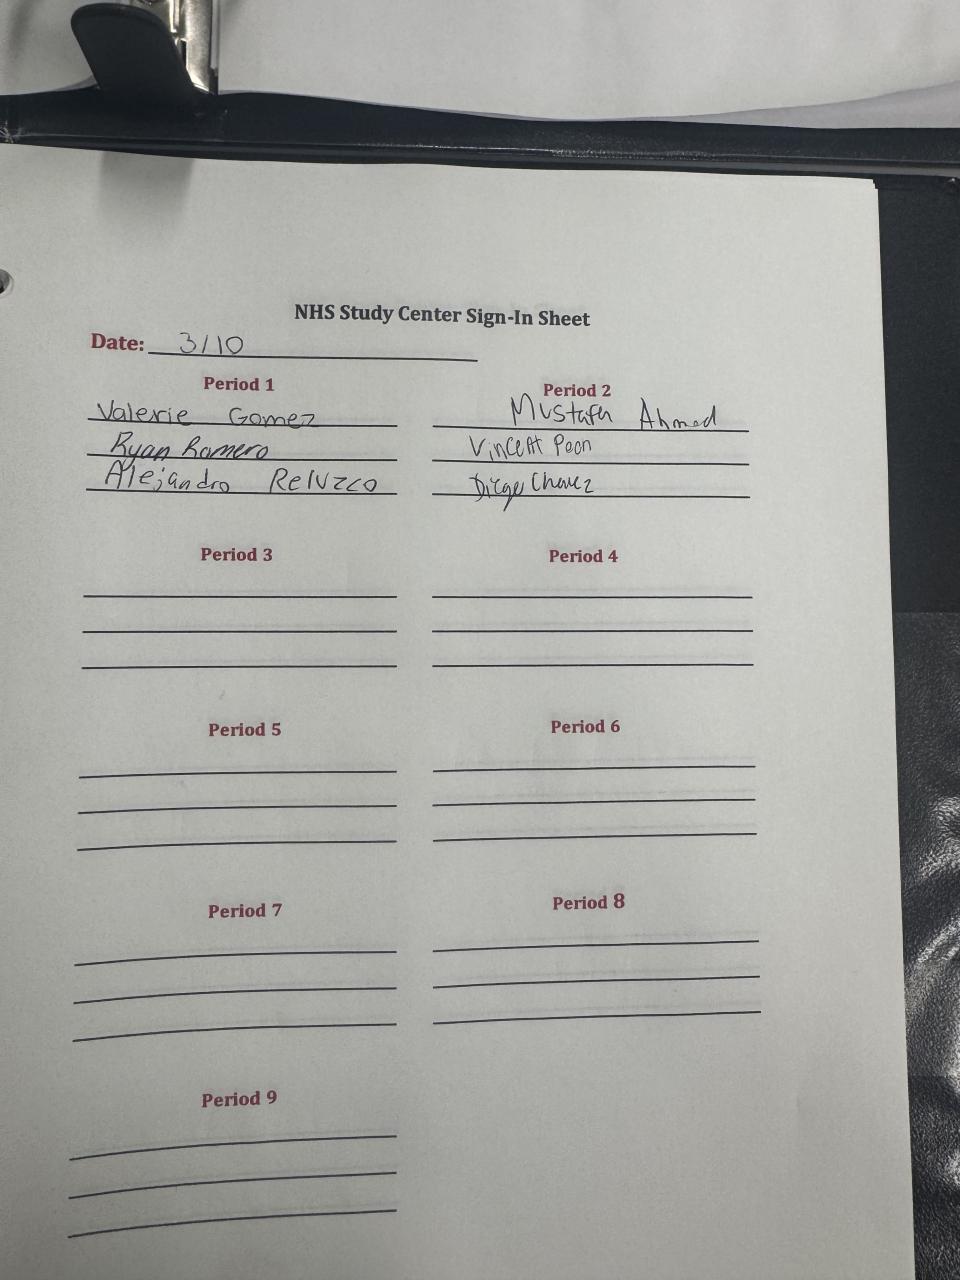 NHS Study Center Sign-In Sheet
Date: 3/10
Period 1
Valerie Gomez
Ryan Romero
Alejandro
Period 2
Mustafa Ahmed
Vincent
Diego Chavez
Period 3
Period 4
Period 5
Period 6
Period 7
Period 8
Period 9